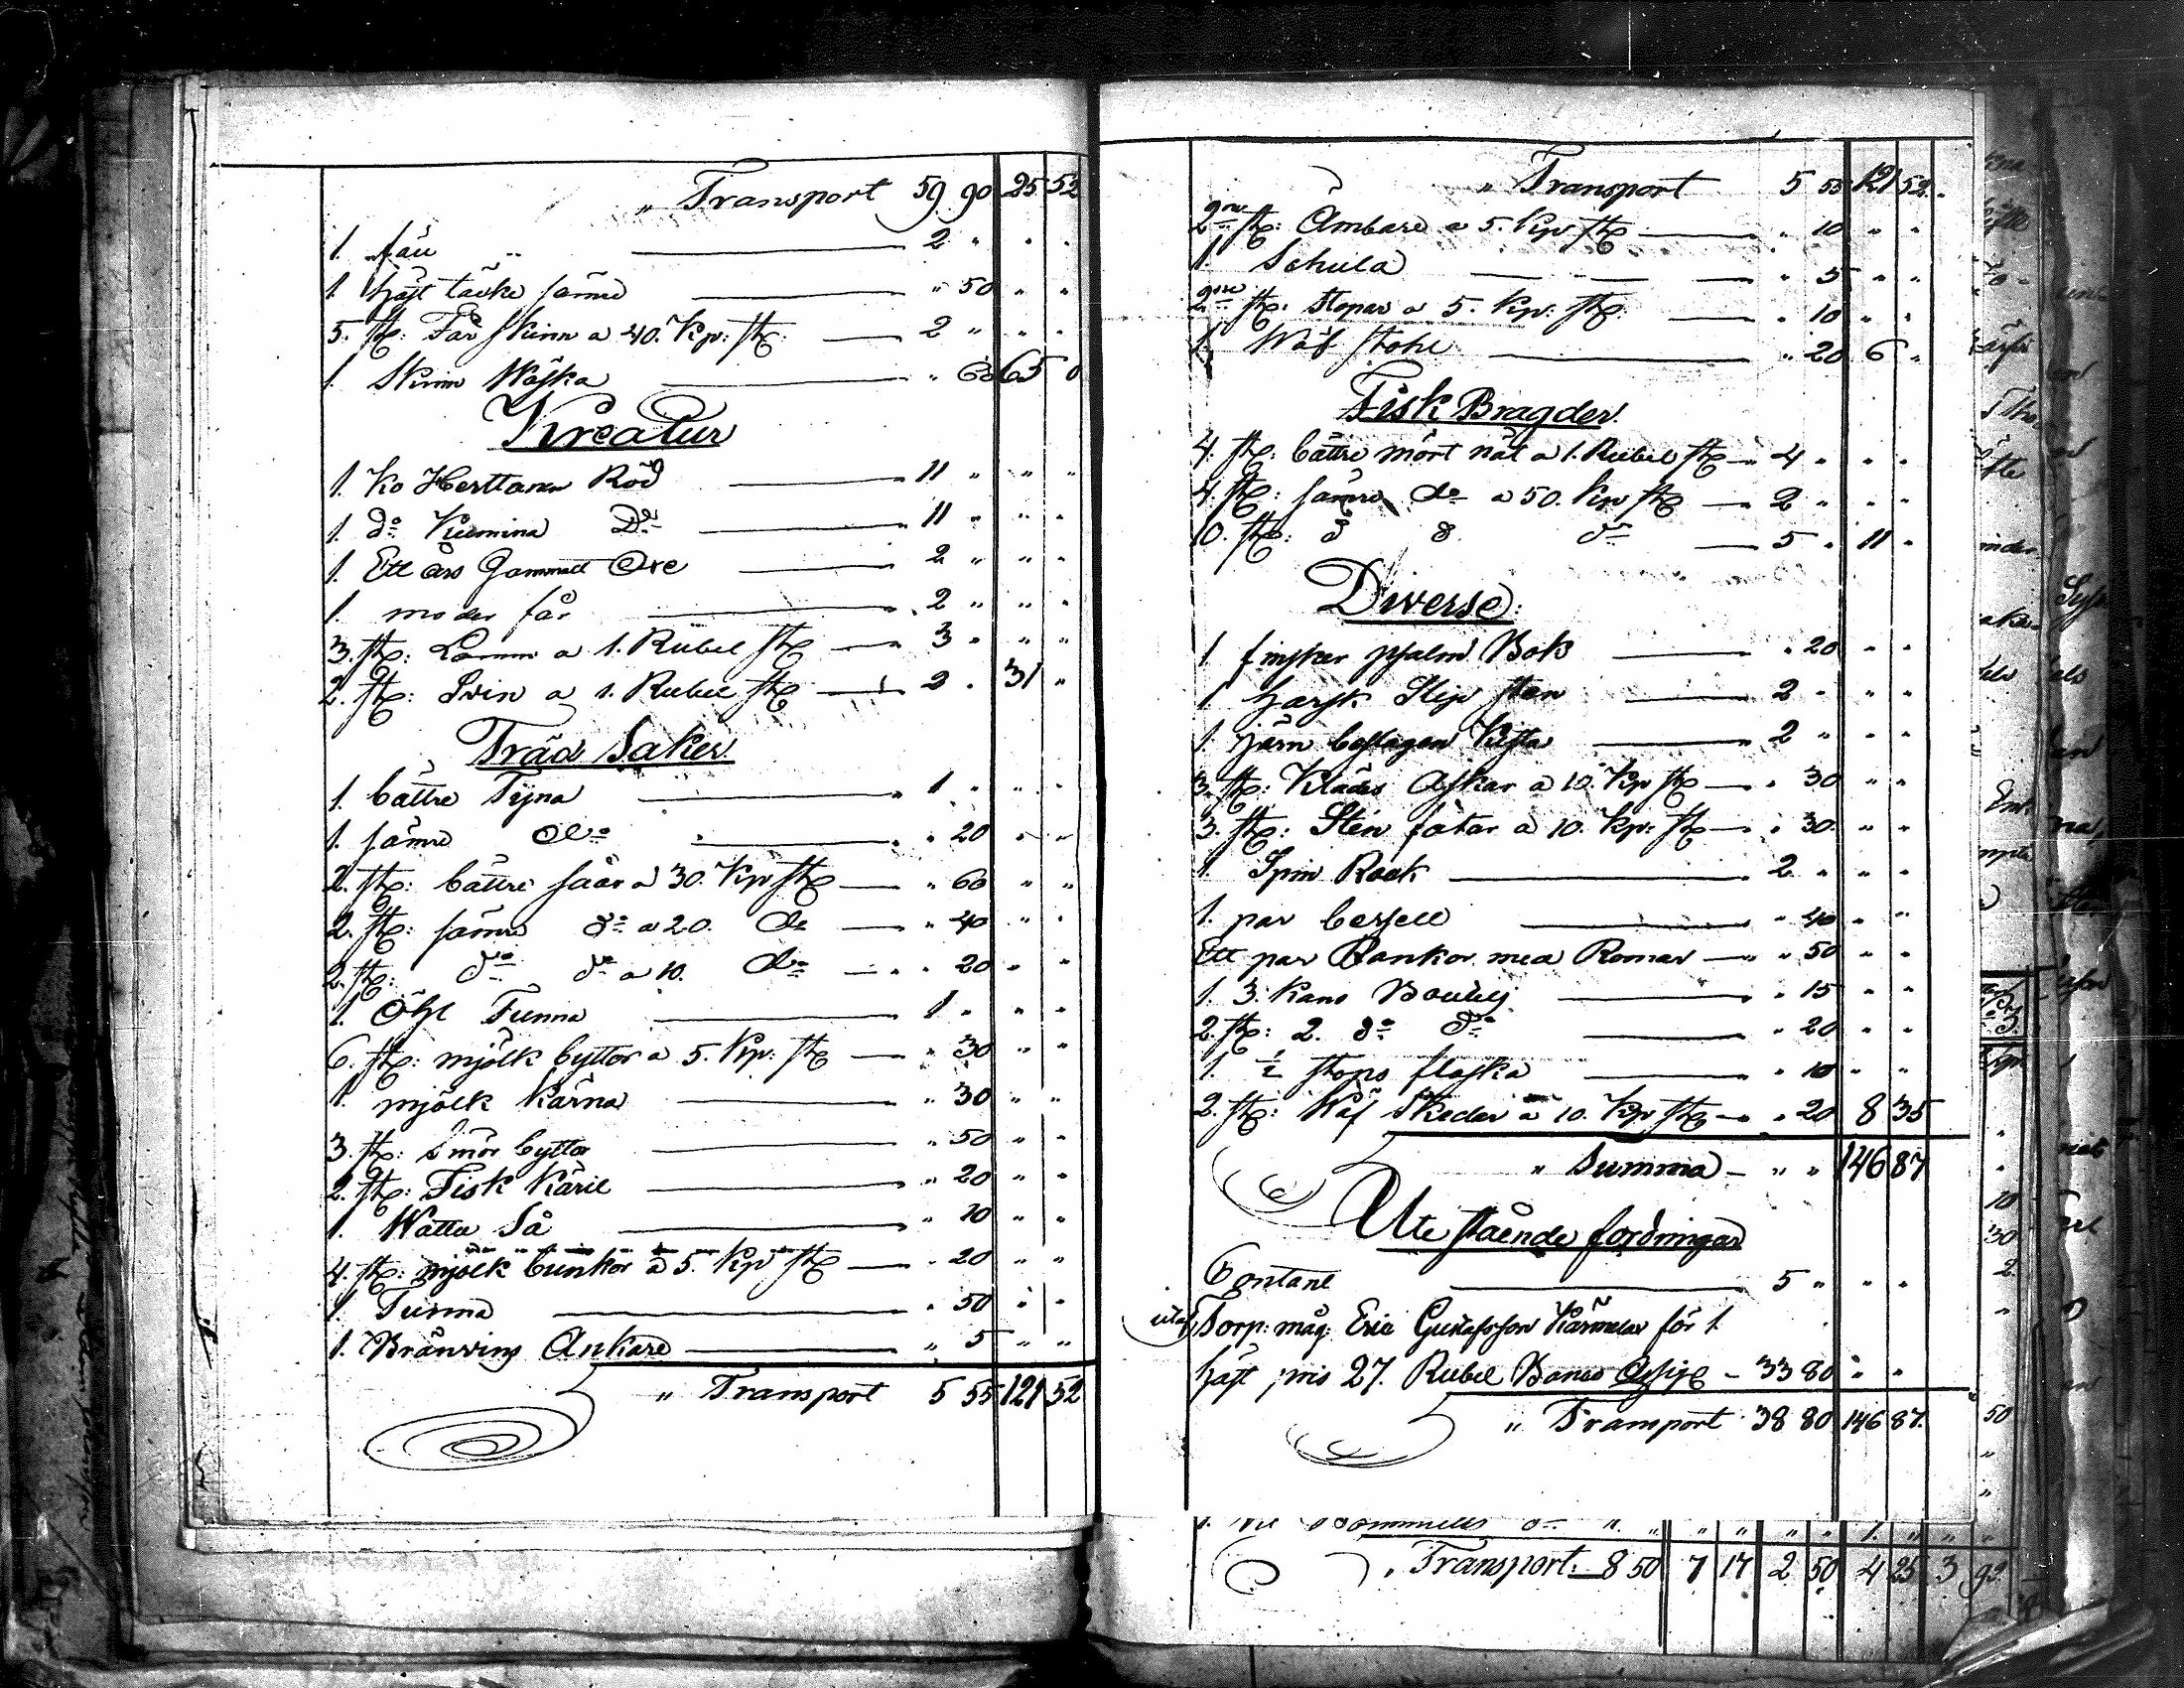 " Transport 59. 90 25 52
1. fäu 2 " " "
1 häst täcke sämre " 50 " "
5. st: Får skinn a 40. Kp: st 2 " " "
1. Skinn Wäska " 60 65 0
Kreatur
1. Ko Herttamn Röd 11 " " "
1. do Kumina Do 11 " " "
1. Ett års Gammalt Oxe 2 " " "
1. moder får 2 " " "
3. st: Lamm a 1. Rubel st 3 " " "
2. st: Svin a 1. Rubel st 2 " 31 "
Träd Saker
1. bättre Tyna 1 " " "
1. sämre do " 20 " "
2. st: bättre såar a 30. Kp st " 60 " "
2. st: sämre do a 20. do " 40 " "
2. st: do do a 10. do " 20 " "
1. Öhl Tunna 1 " " "
6. st: mjölk byttor a 5. Kp: st " 30 " "
1. mjölk Kärna " 30 " "
3. st: Smör byttor " 50 " "
2. st: Fisk Käril " 20 " "
1. Wattu Så " 10 " "
4. st: mjölk bunkor a 5. Kp st " 20 " "
1. Tunna " 50 " "
1. Bränvins Ankare " 5 " "
" Transport 5 55 121 52
" Transport 5 55 121 52
2ne st: Ämbare a 5. Kp st " 10 " "
1. Schula " 5 " "
2ne st: Stopar a 5. Kp: st " 10 " "
1. Wäf stohl " 20 6 "
Fisk Bragder
4. st. bättre mört nät a 1. Rubel st 4 " " "
4. st: sämre do a 50. Kp st 2 " " "
10. st: d d do 5 " 11 "
Diverse:
1 finsker psalm Bok " 20 " "
1 Harsk Slip sten 2 " " "
1. järn beslagen Kista 2 " " "
3. st: Kläds Askar a 10. Kp st " 30 " "
3. st: Sten fatar a 10. Kp: st " 30 " "
1. Spin Rock 2 " " "
1. par " 40 " "
Ett par Bankor med Remar " 50 " "
1. 3. Kans Boutelj " 15 " "
2. st: 2. do do " 20 " "
1. ½ stops flaska " 10 " "
2. st: Wäf Skedar a 10. Kp st " 20 8 35
" Summa " " 146 87
Ute stående fordringar
Contant 5 " " "
utaf Torp: mag: Eric Gustafsson Kärmelax för 1.
häst pris 27. Rubel Banco Assig 33 80 " "
" Transport 38 80 146 87.
Transport: 8 50 7 17 2 50 4 25 3 92